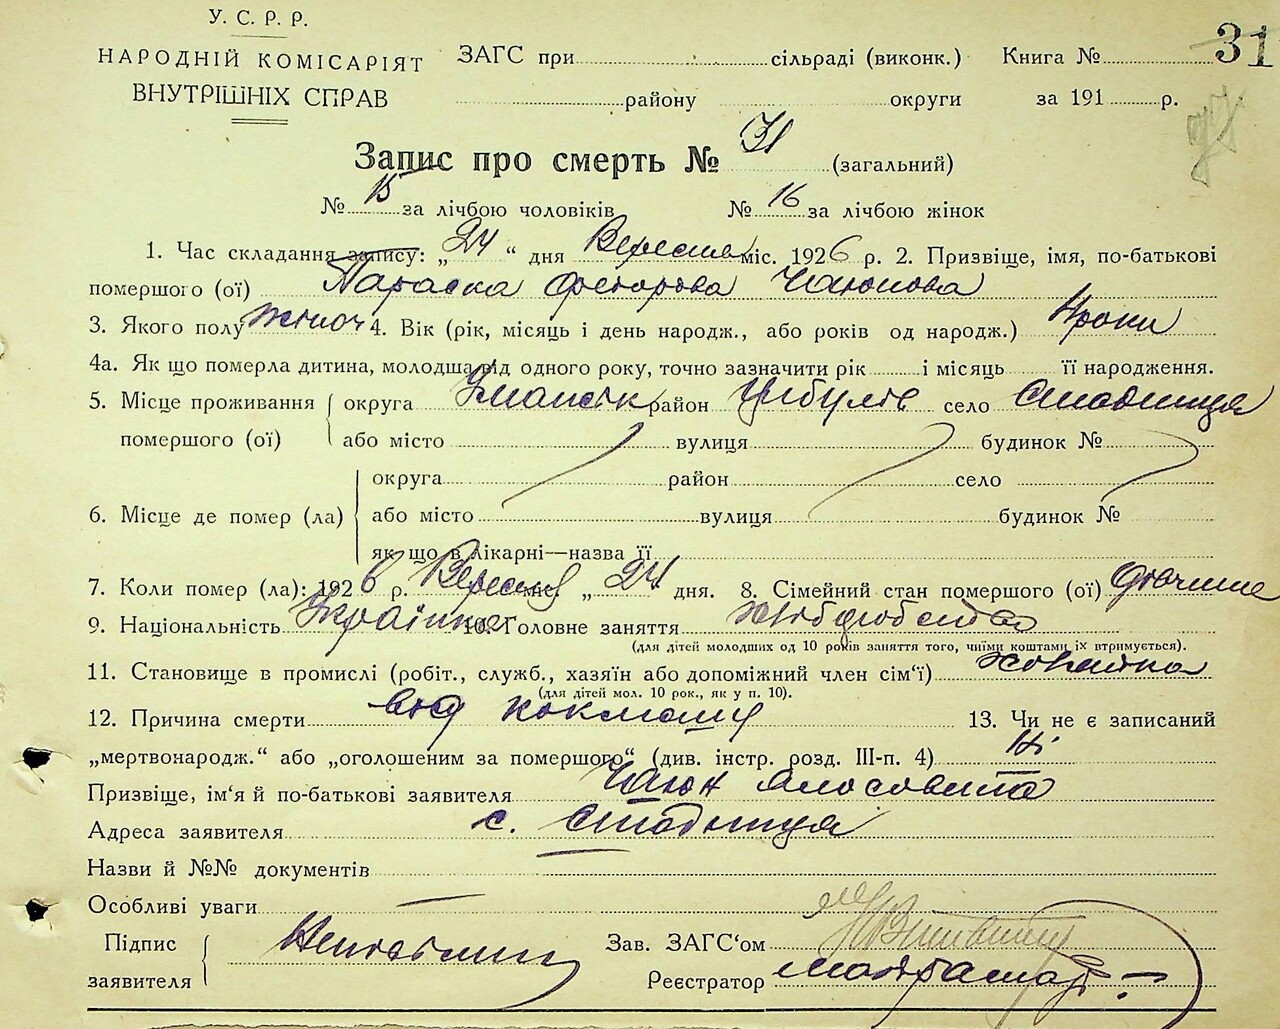 У. С. Р. Р.
НАРОДНІЙ КОМІСАРІЯТ ЗАГС при сільраді (виконк.) Книга № 31
ВНУТРІШНІХ СПРАВ району округи за 191 р.
Запис про смерть № 31 (загальний)
№ 15 за лічбою чоловіків № 16 за лічбою жінок
1. Час складання запису: „24“ дня Вересня міс. 1926 р. 2. Призвіще, імя, по-батькові
помершого (ої) Параска Фекторова Чаюнова
3. Якого полу жіноч 4. Вік (рік, місяць і день народж., або років од народж.) 4 роки
4а. Як що померла дитина, молодша від одного року, точно зазначити рік і місяць її народження.
5. Місце проживання округа Уманськ район Цибулів село Стадниця
помершого (ої) або місто вулиця будинок №
округа район село
6. Місце де помер (ла) або місто вулиця будинок №
як що в лікарні—назва її
7. Коли помер (ла): 1926 р. Вересня міс. „24 дня. 8. Сімейний стан помершого (ої)
9. Національність Українка 10. Головне заняття Хліборобство
(для дітей молодших од 10 років заняття того, чиїми коштами їх втримується).
11. Становище в промислі (робіт., служб., хазяїн або допоміжний член сім‘ї)
(для дітей мол. 10 рок., як у п. 10).
12. Причина смерти від коклюшу 13. Чи не є записаний
„мертвонародж.“ або „оголошеним за помершого“ (див. інстр. розд. III-п. 4) Ні
Призвіще, ім‘я й по-батькові заявителя Чаюн
Адреса заявителя с. Стадниця
Назви й №№ документів
Особливі уваги
Підпис Неписьмен Зав. ЗАГС‘ом
заявителя Реєстратор